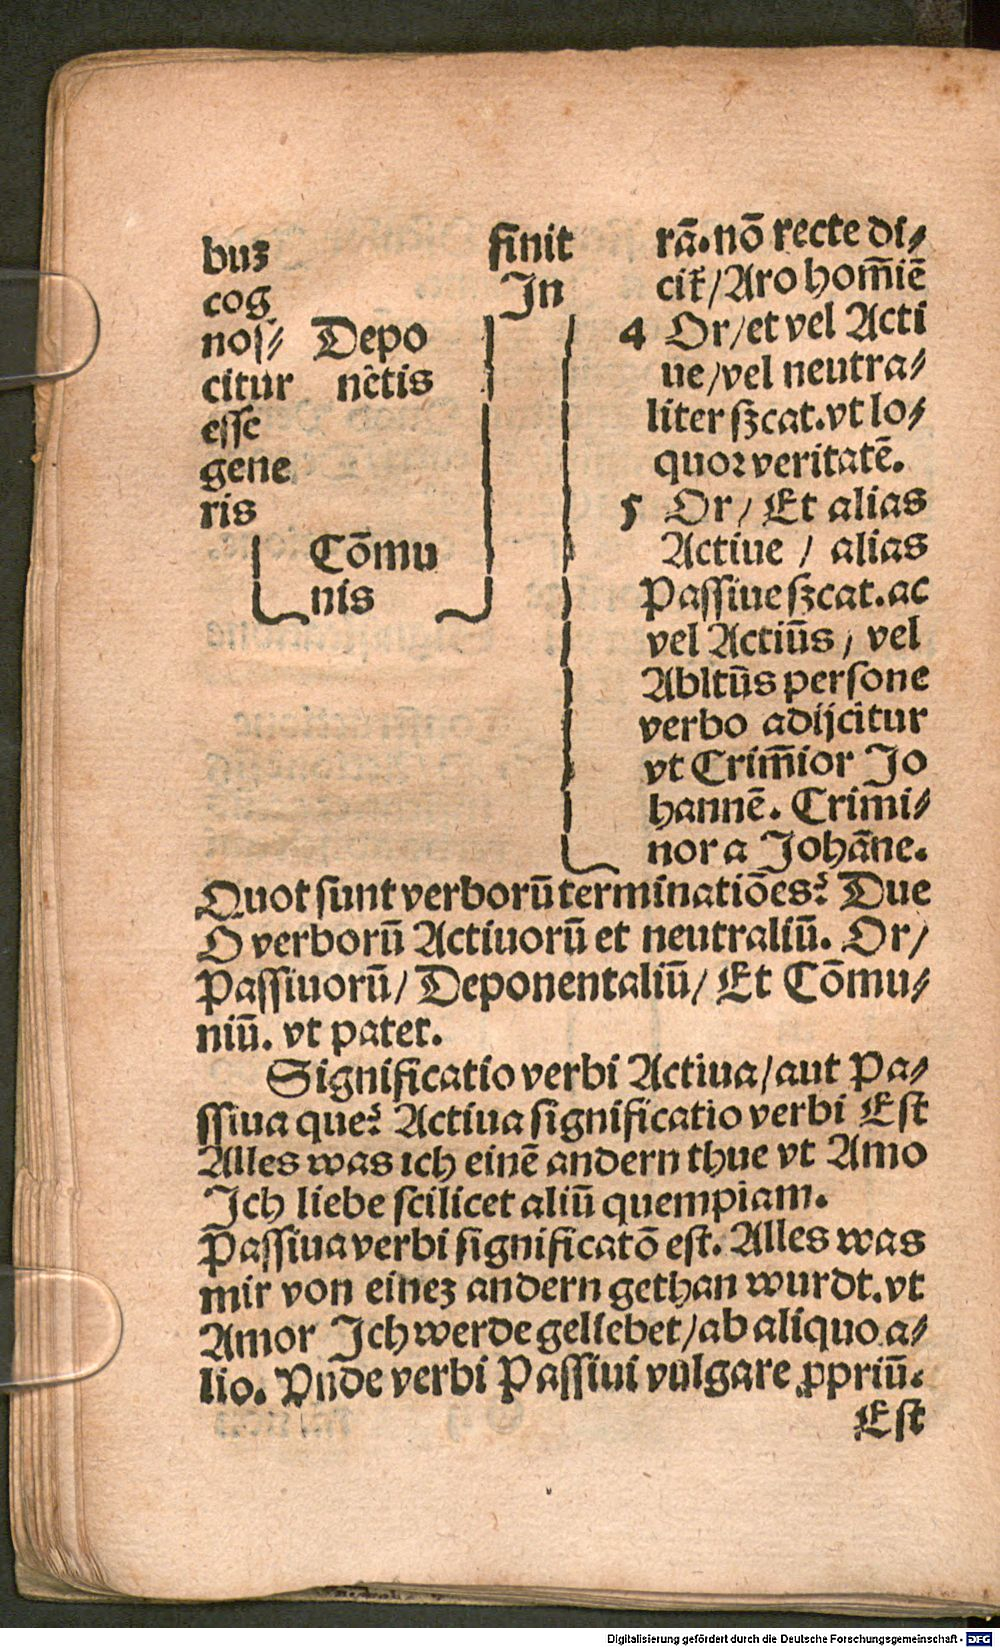 buꝫ
cog
noſ⸗
citur
eſſe
gene
ris
Depo
nētis
Cōmu
nis
finit
In
rā. nō recte di⸗
cit᷑/ Aro hom̄iē
4 Or/ et vel Acti
ue/ vel neutra⸗
liter ſꝫcat. vt lo⸗
quoꝛ veritatē.
5 Or/ Et alias
Actiue / alias
Paſſiue ſꝫcat. ac
vel Actiūs / vel
Abltūs perſone
verbo adijcitur
vt Crim̄ior Jo
hannē. Crimi⸗
nor a Johāne.
Quot ſunt verborū terminatiōes? Due
O verborū Actiuorū et neutraliū. Or/
Paſſiuorū/ Deponentaliū/ Et Cōmu⸗
niū. vt patet.
Significatio verbi Actiua/ aut Pa⸗
ſſiua que? Actiua ſignificatio verbi Eſt
Alles was ich einē andern thue vt Amo
Ich liebe ſcilicet aliū quempiam.
Paſſiua verbi ſignificatō eſt. Alles was
mir von eineꝫ andern gethan wurdt. vt
Amor Ich werde geliebet/ ab aliquo a⸗
lio. Vn̄de verbi Paſſiui vulgare ꝓpriū.
Eſt
Digitalisierung gefördert durch die Deutsche Forschungsgemeinschaft - DFG